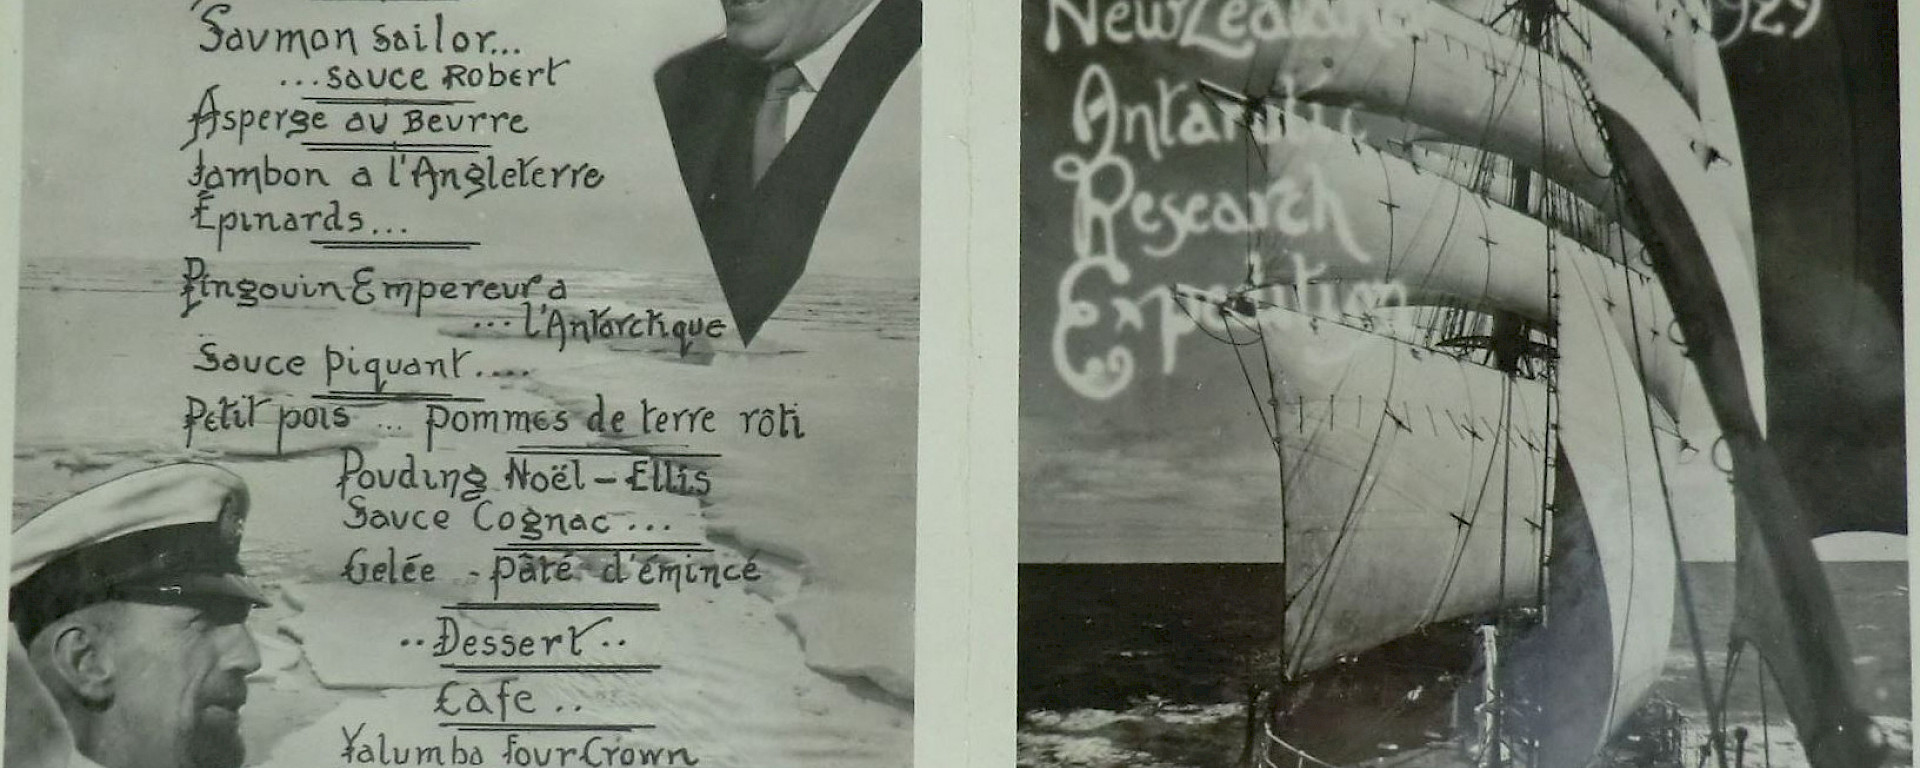 Saumon Sailor...
...sauce Robert
Asperge au Beurre
Jambon a l'Angleterre
Épinards...
Pingouin Empereur a
...l'Antarctique
Sauce piquant....
Petit pois ... pommes de terre rôti
Pouding Noël - Ellis
Sauce Cognac ...
Gelée - pâté d'émincé
..Dessert..
Cafe ..
Yalumba four Crown
New Zealand 1929
Antarctic
Research
Expedition